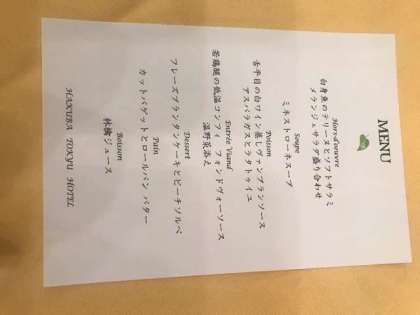 MENU
Hors-d'œuvre
白身魚のテリーヌとソフトサラミ
メランジュサラダ盛り合わせ
Soupe
ミネストローネスープ
Poisson
舌平目の白ワイン蒸しヴァンブランソース
アスパラガスとラタトゥイユ
Entrée Viand
若鶏腿の低温コンフィ フォンドヴォーソース
温野菜添え
Dessert
フレーズプランタンケーキとピーチソルベ
Pain
カットバゲットとロールパン バター
Boisson
林檎ジュース
HAKUBA TOKYU HOTEL